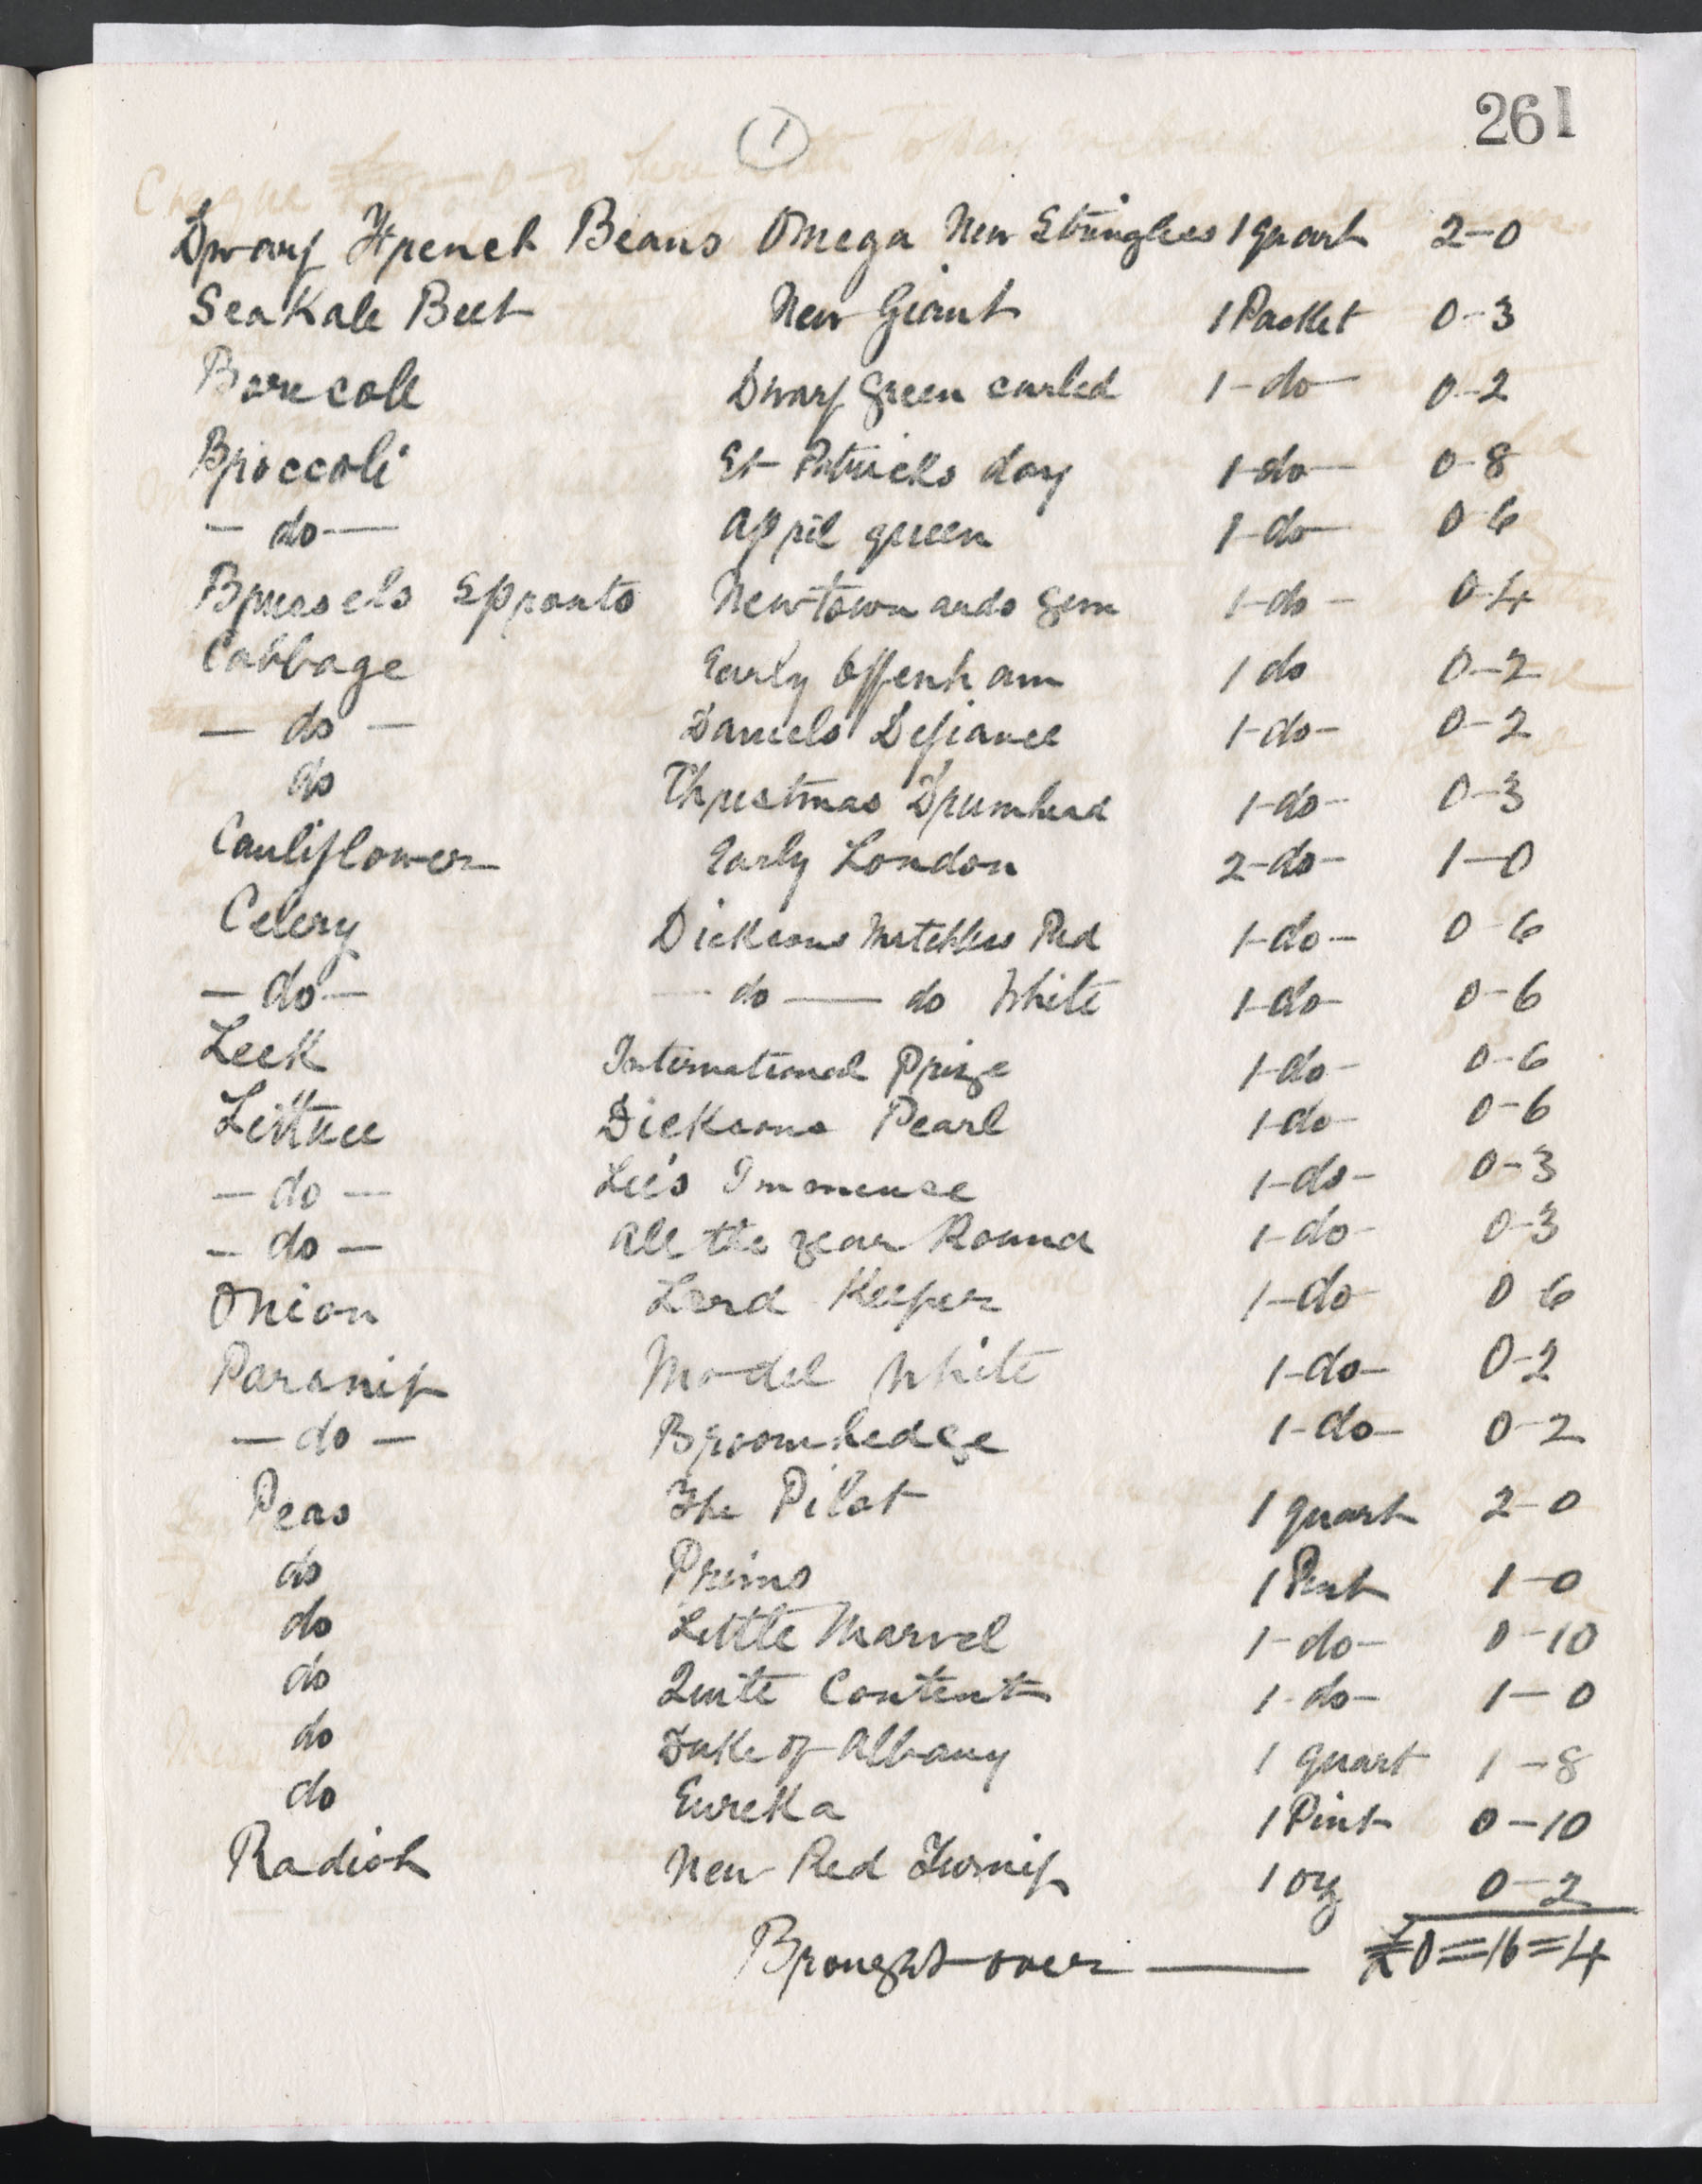 261
1
Dwarf French Beans Omega New Stringless 1 quart 2-0
Sea Kale Beet New Giant 1 Packet 0-3
Borecole Dwarf green curled 1-do- 0-2
Broccoli St Patricks day 1-do- 0-8
-do- April queen 1-do- 0-6
Brussels Sprouts Newtownards gem 1-do- 0-4
Cabbage Early Offenham 1 do 0-2
-do- Daniels Defiance 1-do- 0-2
do Christmas Drumhead 1-do- 0-3
Cauliflower Early London 2-do- 1-0
Celery Dicksons Matchless Red 1-do- 0-6
-do- -do- do White 1-do- 0-6
Leek International Prize 1-do- 0-6
Lettuce Dicksons Pearl 1-do- 0-6
-do- Lee's Immense 1-do- 0-3
-do- All the year Round 1-do- 0-3
Onion Lord Keeper 1-do- 0-6
Parsnip Model White 1-do- 0-2
-do- Broomhedge 1-do- 0-2
Peas The Pilot 1 quart 2-0
do Primo 1 Pint 1-0
do Little Marvel 1-do- 0-10
do Quite Content 1-do- 1-0
do Duke of Albany 1 quart 1-8
do Eureka 1 Pint 0-10
Radish New Red Turnip 1 oz 0-2
Brought over - £0=16=4